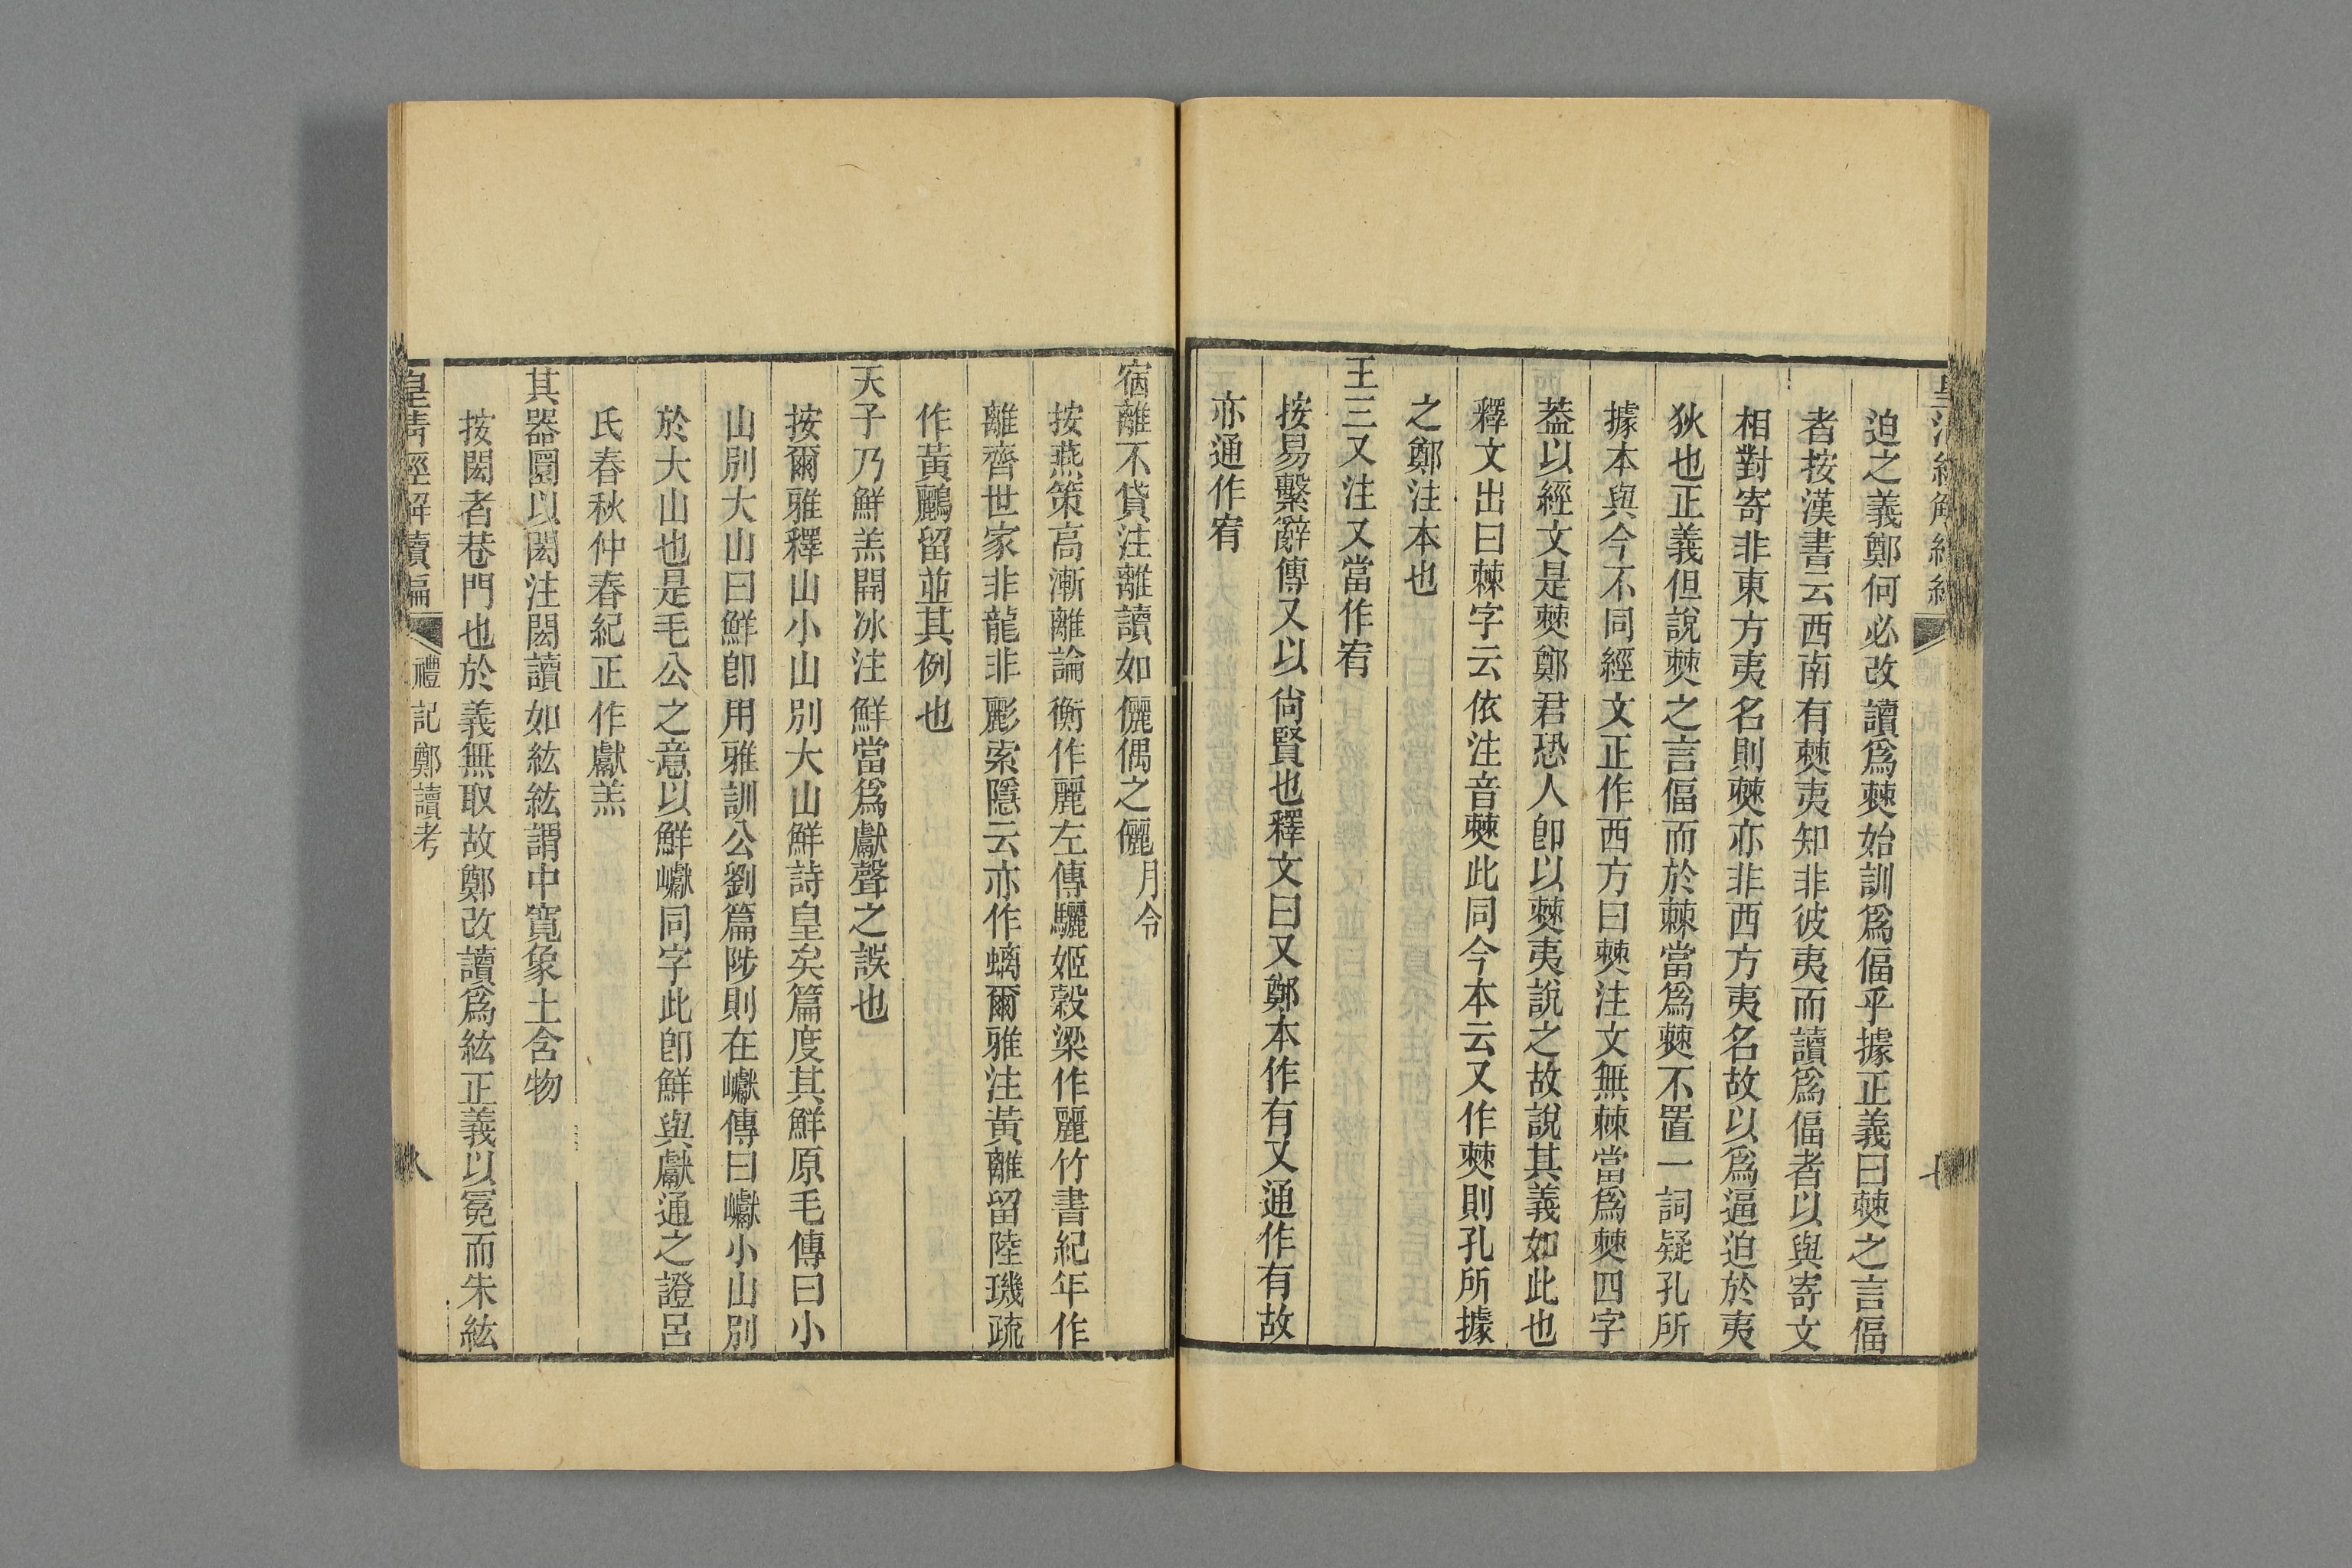 迫之義鄭何必改讀爲僰始訓爲偪乎據正義曰僰之言偪
者按漢書云西南有僰夷知非彼夷而讀爲偪者以與寄文
相對寄非東方夷名則僰亦非西方夷名故以爲逼迫於夷
狄也正義但說僰之言偪而於棘當爲僰不置一詞疑孔所
據本與今不同經文正作西方曰僰注文無棘當爲僰四字
葢以經文是僰鄭君恐人卽以僰夷說之故說其義如此也
釋文出曰棘字云依注音僰此同今本云又作僰則孔所據
之鄭注本也
王三又注又當作宥
按易繫辭傳又以尙賢也釋文曰又鄭本作有又通作有故
亦通作宥
宿離不貸注離讀如儷偶之儷月令
按燕策高漸離論衡作麗左傳驪姬穀梁作麗竹書紀年作
離齊世家非龍非彲索隱云亦作螭爾雅注黃離留陸璣疏
作黃鸝留並其例也
天子乃鮮羔開冰注鮮當爲獻聲之誤也
按爾雅釋山小山別大山鮮詩皇矣篇度其鮮原毛傳曰小
山別大山曰鮮卽用雅訓公劉篇陟則在巘傳曰巘小山別
於大山也是毛公之意以鮮巘同字此卽鮮與獻通之證呂
氏春秋仲春紀正作獻羔
其器圜以閎注閎讀如紘紘謂中寬象土含物
按閎者巷門也於義無取故鄭改讀爲紘正義以冕而朱紘
皇清經解續編 禮記鄭讀考 八